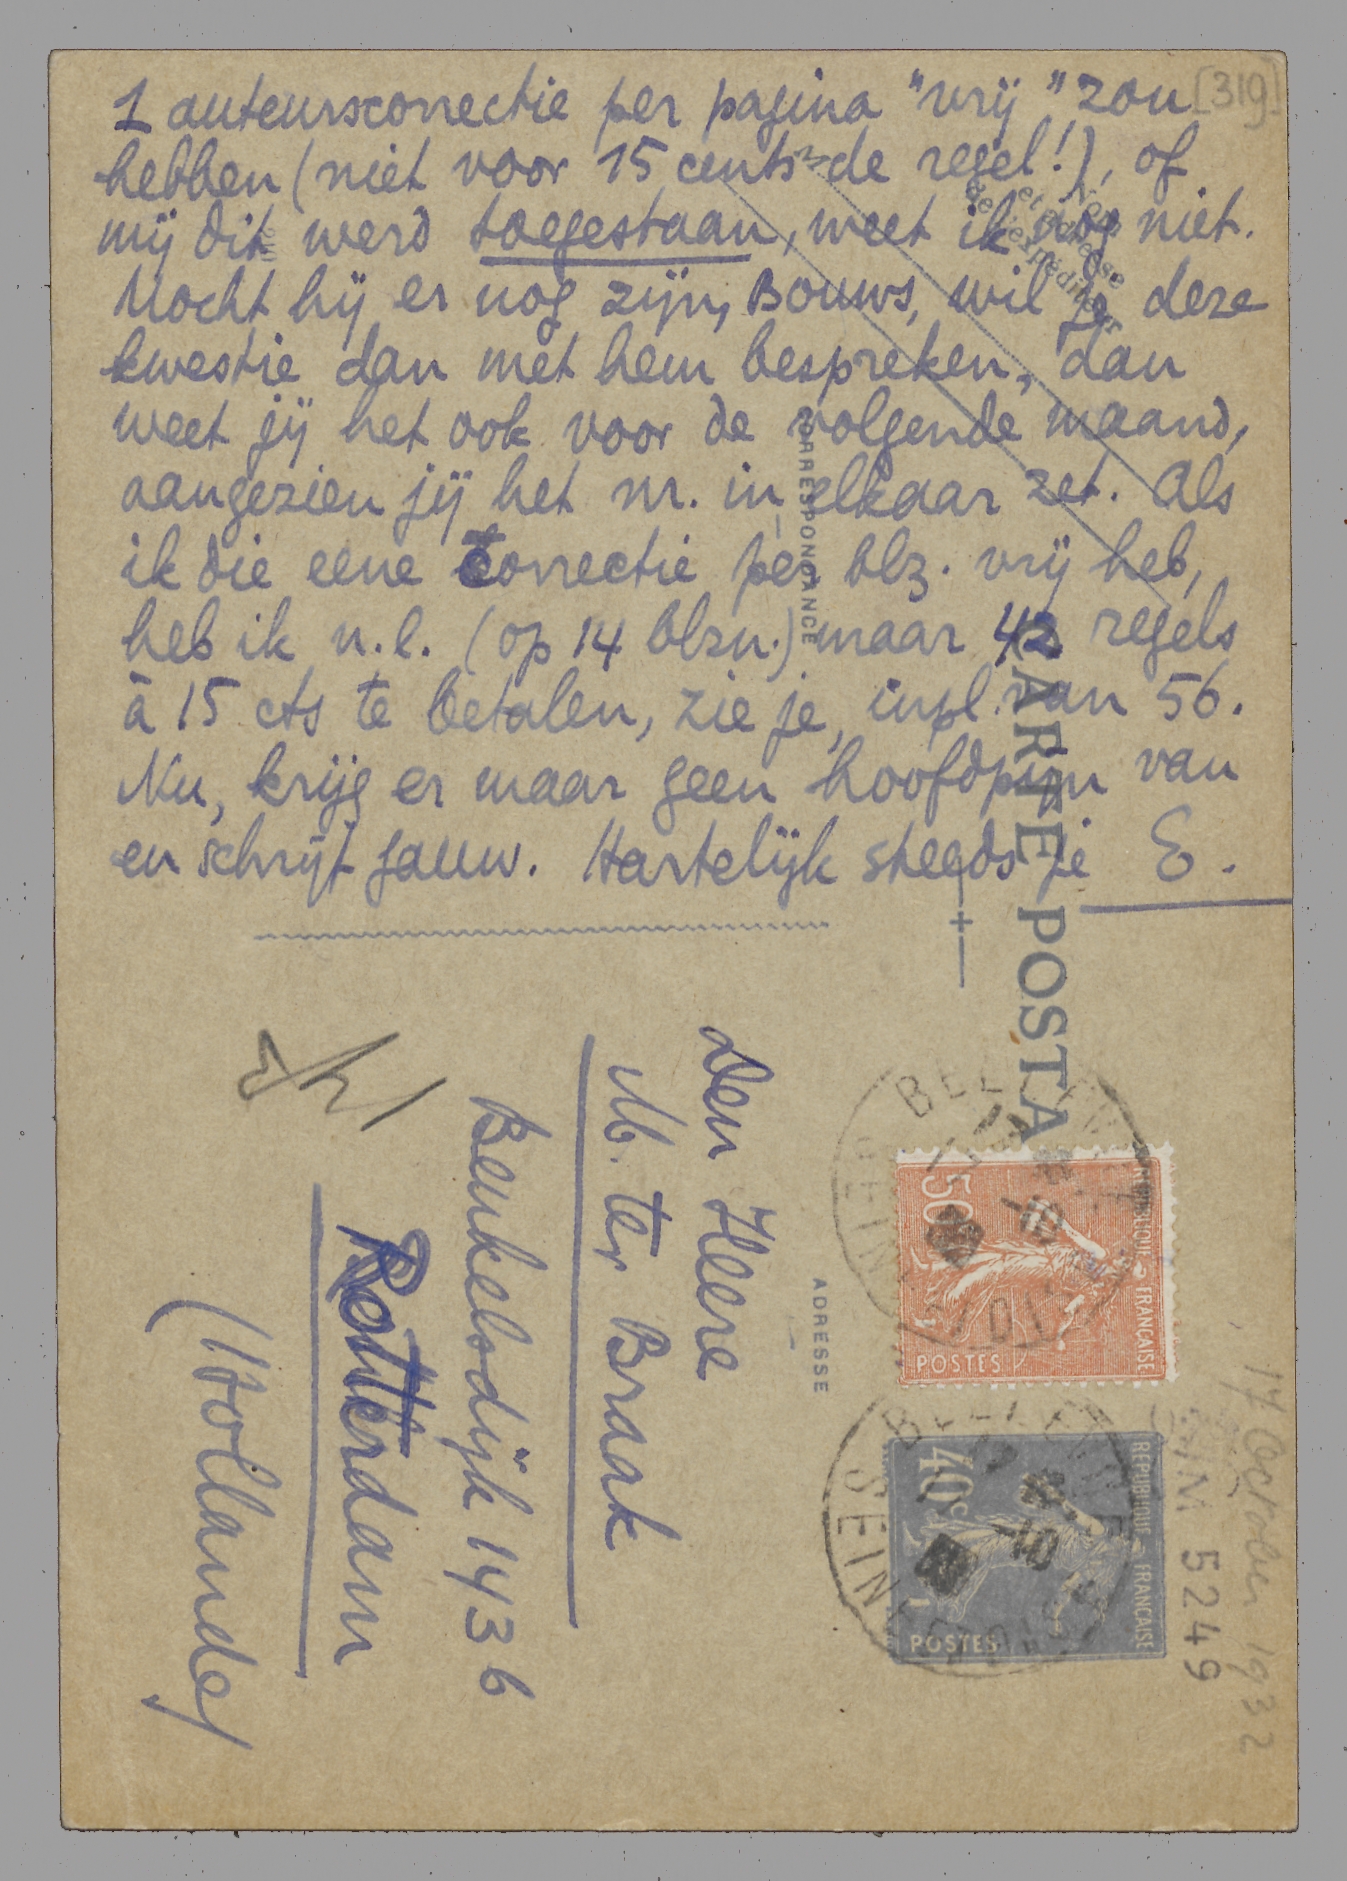 [319]
1 auteurscorrectie per pagina "vrij" zou
hebben (niet voor 15 cents de regel!), of
mij dit werd toegestaan, weet ik nog niet.
Mocht hij er nog zijn, Bouws, wil je deze
kwestie dan met hem bespreken, dan
weet jij het ook voor de volgende maand,
aangezien jij het nr. in elkaar zet. Als
ik die eene correctie per blz. vrij heb,
heb ik n.l. (op 14 blzn.) maar 42 regels
à 15 cts te betalen, zie je, inpl. van 56.
Nu, krijg er maar geen hoofdpijn van
en schrijf gauw. Hartelijk steeds je E.
Nom
et adresse
de l'expéditeur
CORRESPONDANCE
CARTE POSTA
ADRESSE
Den Heere
M. ter Braak
Beukelsdijk 143 b
Rotterdam
(Hollande)
RÉPUBLIQUE FRANÇAISE
50c
POSTES
RÉPUBLIQUE FRANÇAISE
40c
POSTES
17 October 1932
5249